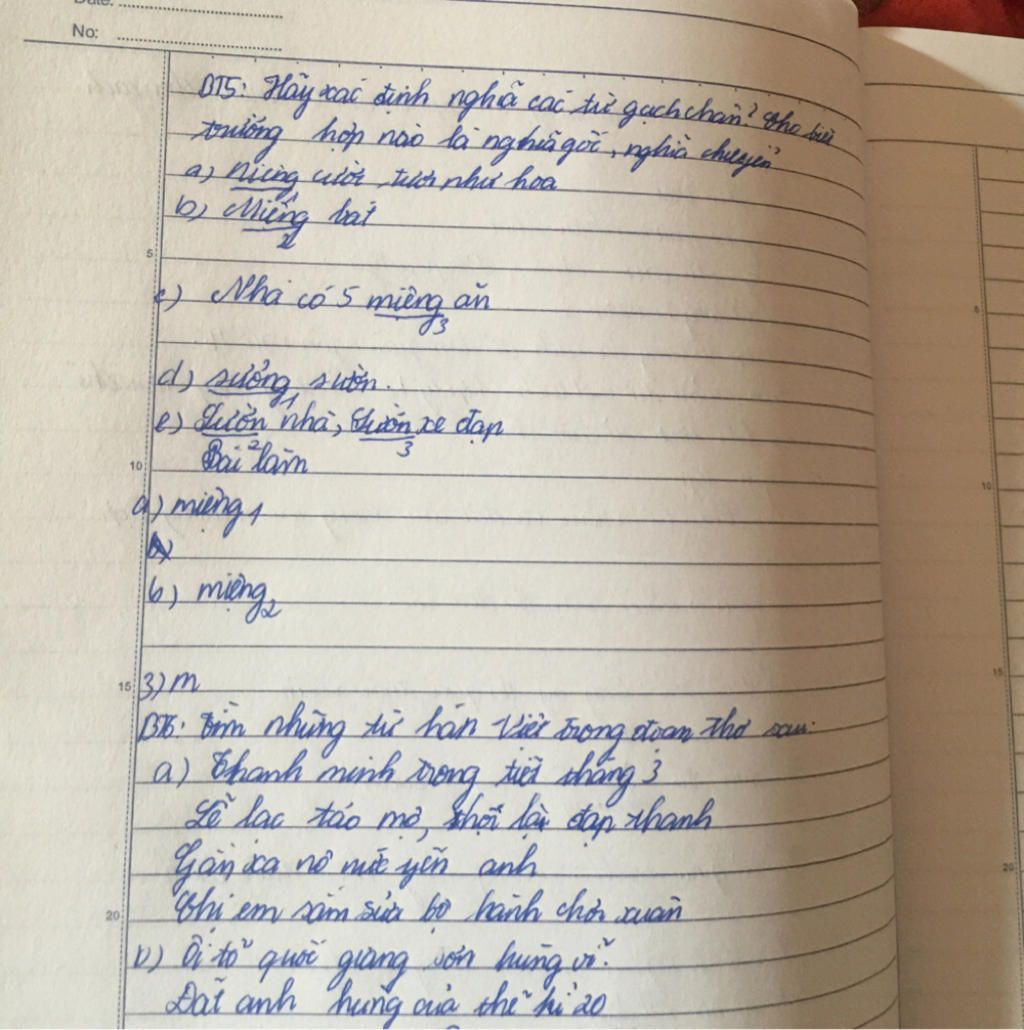 Date:
No:
BT5: Hãy xác định nghĩa các từ gạch chân? Cho biết
trường hợp nào là nghĩa gốc, nghĩa chuyển
a) Miệng1 cười tươi như hoa
b) Miệng2 bát
5
c) Nhà có 5 miệng3 ăn
d) sường1 sườn.
e) Sườn2 nhà, Sườn3 xe đạp
10
Bài làm
a) miệng1
b) miệng2
15
3) m
BT6: Tìm những từ hán Việt trong đoạn thơ sau:
a) Thanh minh trong tiết tháng 3
Lễ lac táo mộ, hội là đạp thanh
Gần xa nô nức yến anh
Chị em sắm sửa bộ hành chơi xuân
20
b) Ôi tổ quốc giang sơn hùng vĩ.
Đất anh hùng của thế kỉ 20
5
10
15
20